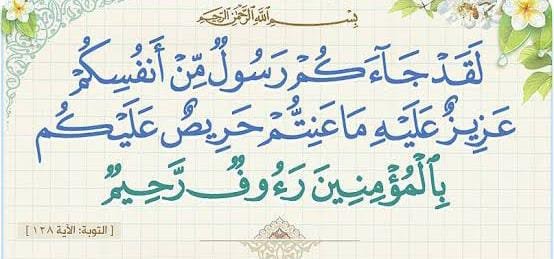 بِسْمِ اللَّهِ الرَّحْمَٰنِ الرَّحِيمِ
لَقَدْ جَآءَكُمْ رَسُولٌ مِّنْ أَنفُسِكُمْ
عَزِيزٌ عَلَيْهِ مَا عَنِتُّمْ حَرِيصٌ عَلَيْكُم
بِٱلْمُؤْمِنِينَ رَءُوفٌ رَّحِيمٌ
[ التوبة: الآية ١٢٨ ]